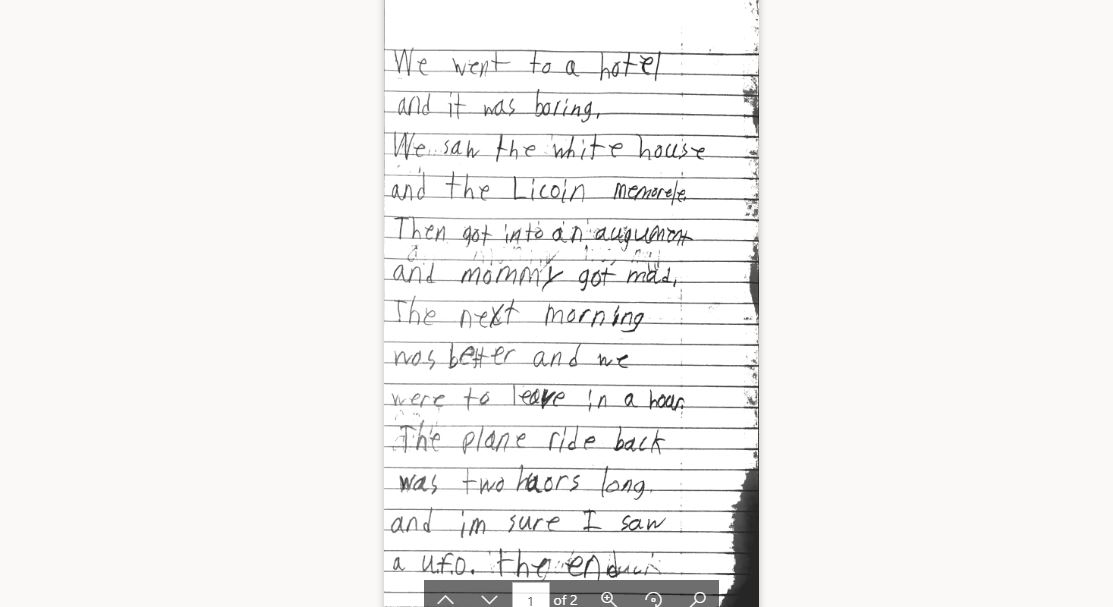 We went to a hotel
and it was boring.
We saw the white house
and the Licoin memorele
Then got into an augument
and mommy got mad.
The next morning
was better and we
were to leave in a hour.
The plane ride back
was two haors long.
and im sure I saw
a u.f.o. the end
1 of 2